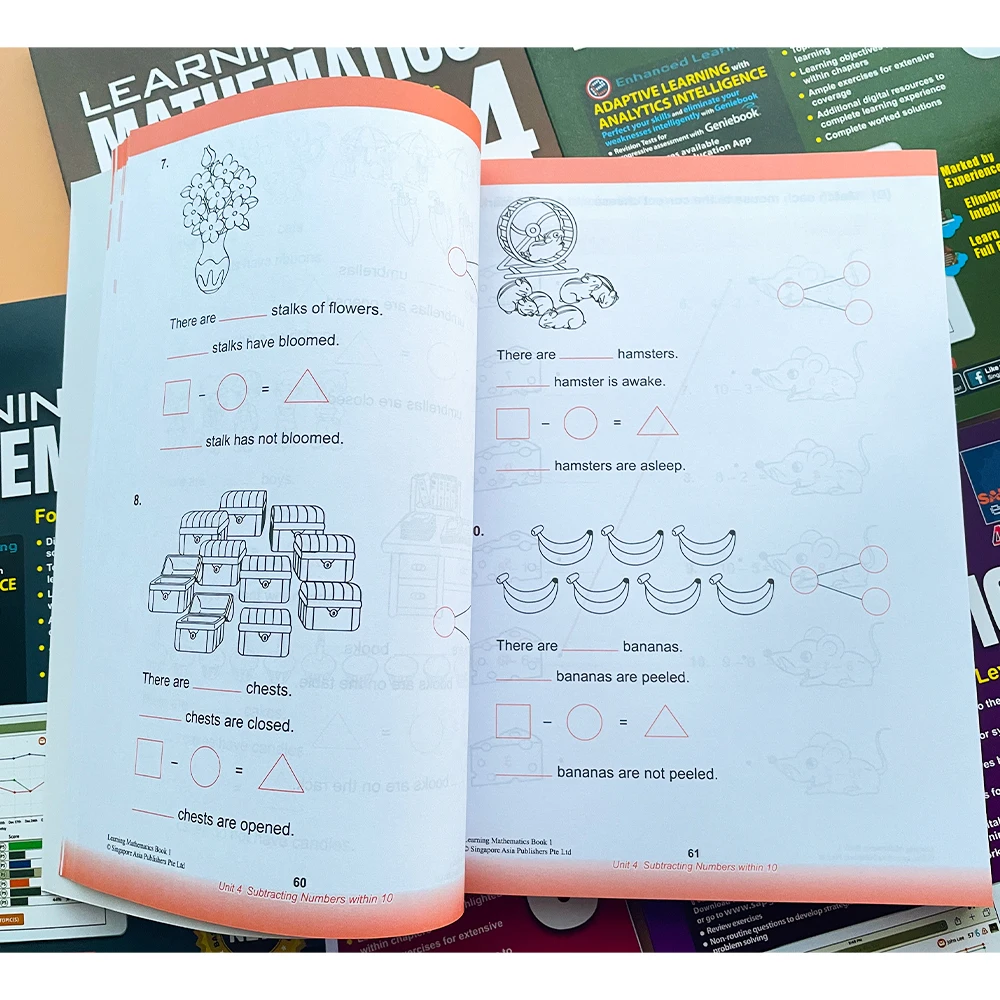 LEARNIN
MATHEMATICS
4
Enhanced Learn
ADAPTIVE LEARNING with
ANALYTICS INTELLIGENCE
Perfect your skills and eliminate your
weaknesses intelligently with Geniebook
• Revision Tests for
progressive assessment with Geniebook
available
ucation App
learning
• Learning objectives
within chapters
• Ample exercises for extensive
coverage
• Additional digital resources to
complete learning experience
• Complete worked solutions
Marked by
Experience
Elimin
Intelli
Learn
Full
Like
7.
There are ______ stalks of flowers.
______ stalks have bloomed.
− =
______ stalk has not bloomed.
8.
There are ______ chests.
______ chests are closed.
− =
______ chests are opened.
Learning Mathematics Book 1
© Singapore Asia Publishers Pte Ltd
60
Unit 4 Subtracting Numbers within 10
There are ______ hamsters.
______ hamster is awake.
− =
______ hamsters are asleep.
0.
There are ______ bananas.
______ bananas are peeled.
− =
______ bananas are not peeled.
Learning Mathematics Book 1
© Singapore Asia Publishers Pte Ltd
61
Unit 4 Subtracting Numbers within 10
NIN
EM
Fo
ng
CE
Score
TOPIC(S)
within chapter
exercises for extensive
or go to www.sap
• Review exercises
• Non-routine questions to develop strateg
problem solving